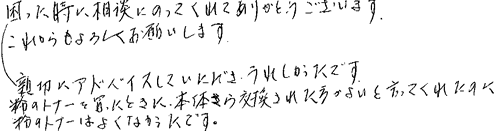 困った時に相談にのってくれてありがとうございます.
これからもよろしくお願いします.
親切にアドバイスしていただき、うれしかったです.
粉のトナーを買ったときに、本体から交換された方がよいと言ってくれたのに
粉のトナーはよくなかったです。